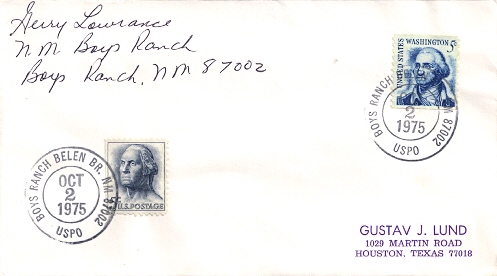 Gerry Lowrance
N.M. Boys Ranch
Boys Ranch, NM 87002
UNITED STATES
WASHINGTON 5c
BOYS RANCH BE NM 87002
2
1975
USPO
U.S. POSTAGE
BOYS RANCH BELEN BR. NM 87002
OCT
2
1975
USPO
GUSTAV J. LUND
1029 MARTIN ROAD
HOUSTON, TEXAS 77018